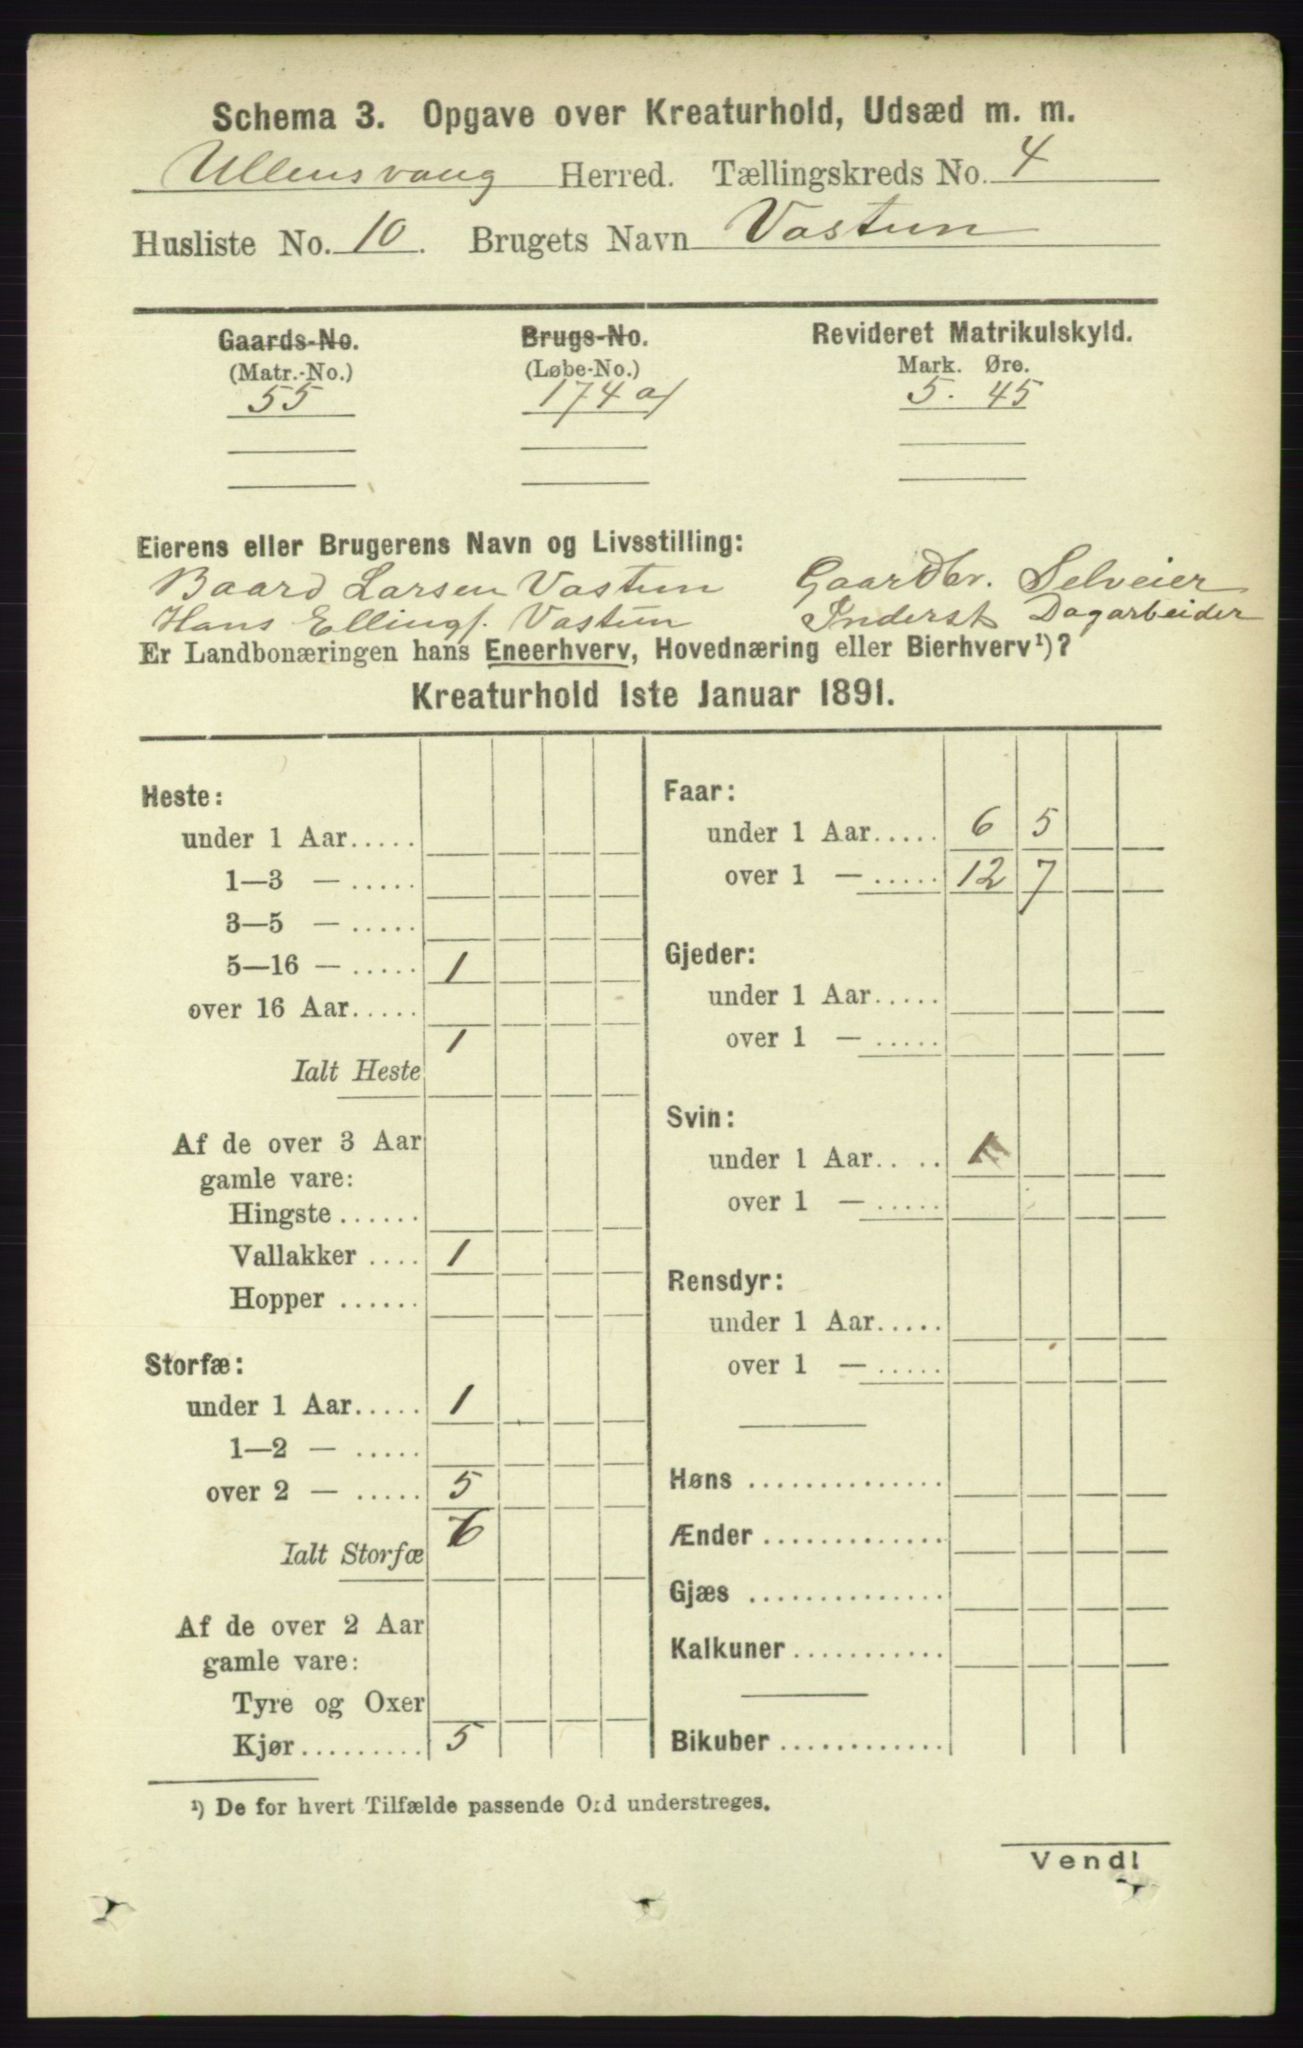 Schema 3. Opgave over Kreaturhold, Udsæd m. m.
Ullensvang Herred. Tællingskreds No. 4
Husliste No. 10. Brugets Navn Vastun
Gaards-No. Brugs-No. Revideret Matrikulskyld.
(Matr.-No.) (Løbe-No.) Mark. Øre.
55 174 a/ 5. 45
Eierens eller Brugerens Navn og Livsstilling:
Baard Larsen Vastun Gaardbr. Selveier
Hans Ellings. Vastun Inderst Dagarbeider
Er Landbonæringen hans Eneerhverv, Hovednæring eller Bierhverv¹)?
Kreaturhold 1ste Januar 1891.
Heste:
under 1 Aar.....
1—3 — .....
3—5 — .....
5—16 — ..... 1
over 16 Aar.....
Ialt Heste 1
Af de over 3 Aar
gamle vare:
Hingste ......
Vallakker .... 1
Hopper ......
Storfæ:
under 1 Aar..... 1
1—2 — .....
over 2 — ..... 5
Ialt Storfæ 6
Af de over 2 Aar
gamle vare:
Tyre og Oxer
Kjør......... 5
Faar:
under 1 Aar..... 6 5
over 1 — ..... 12 7
Gjeder:
under 1 Aar.....
over 1 — .....
Svin:
under 1 Aar..... 1
over 1 — .....
Rensdyr:
under 1 Aar.....
over 1 — .....
Høns ..............
Ænder .............
Gjæs ..............
Kalkuner ...........
Bikuber ............
¹) De for hvert Tilfælde passende Ord understreges.
Vend!